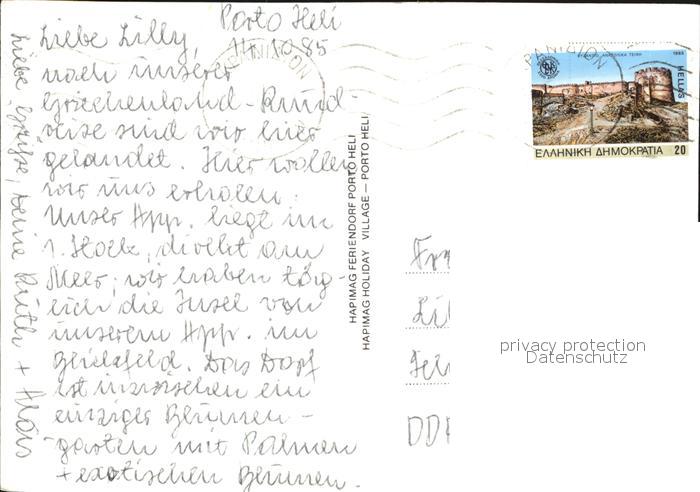 Porto Heli
14.10.85
Liebe Lilly,
nach unserer
Griechenland-Rund-
reise sind wir hier
gelandet. Hier wollen
wir uns erholen.
Unser App. liegt im
1. Stock, direkt am
Meer, wir haben täg-
lich die Insel von
unserem App. im
Blickfeld. Das Dorf
ist inzwischen ein
einziger Blumen-
garten mit Palmen
+ exotischen Blumen.
Liebe Grüsse, Deine Ruth + Alois
HAPIMAG FERIENDORF PORTO HELI
HAPIMAG HOLIDAY VILLAGE – PORTO HELI
HELLAS
ΕΛΛΗΝΙΚΗ ΔΗΜΟΚΡΑΤΙΑ 20
DD
privacy protection
Datenschutz